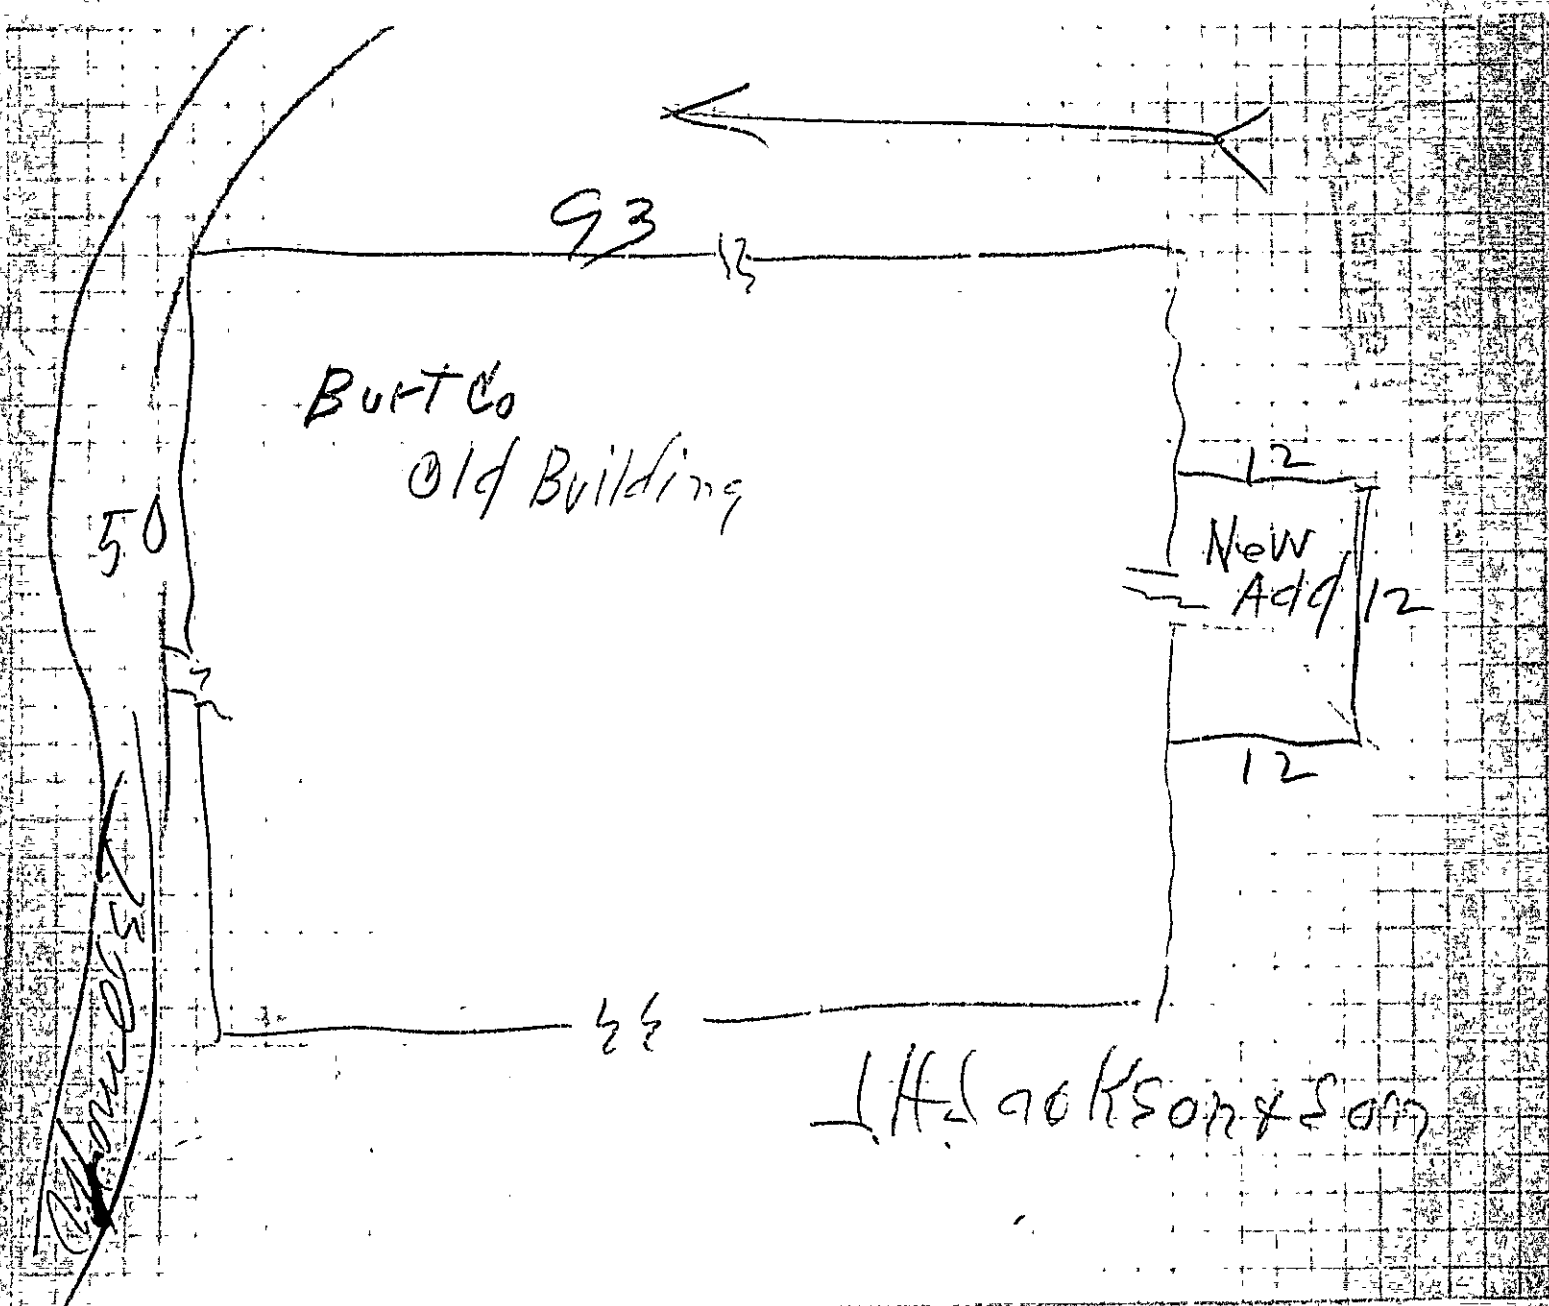 93
Burt Co
Old Building
50
12
New
Add
12
12
J H Jackson & Son